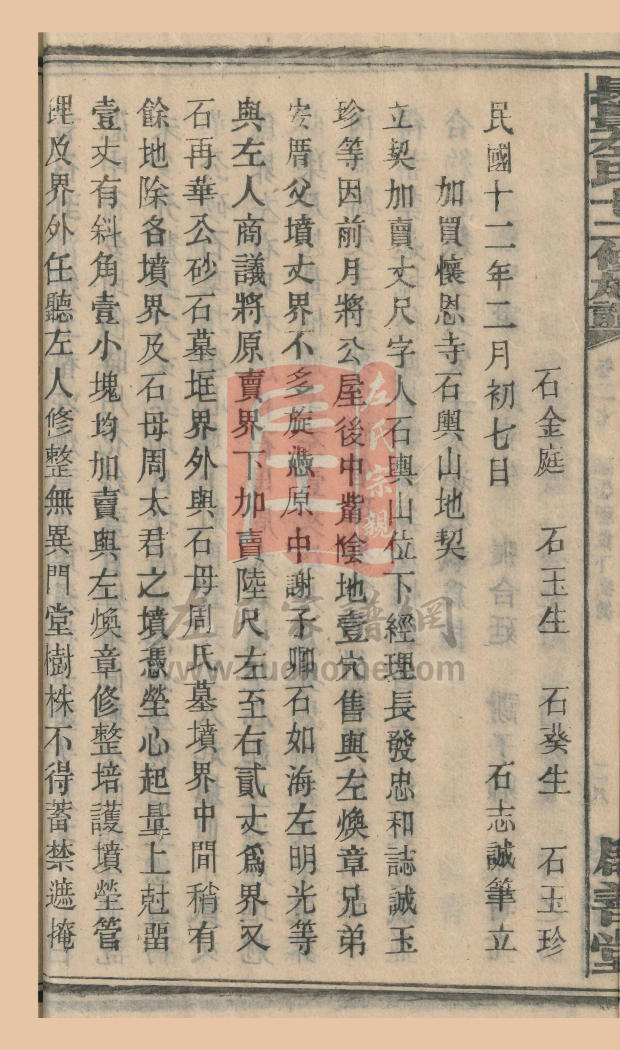 石金庭 石玉生 石葵生 石玉珍
民國十二年二月初七日 石志誠筆立
加買懷恩寺石輿山地契
立契加賣丈尺字人石輿山位下經理長發忠和誌誠玉
珍等因前月將公屋後中嘴陰地壹穴售與左煥章兄弟
安厝父墳丈界不多旋憑原中謝子卿石如海左明光等
與左人商議將原賣界下加賣陸尺左至右貳丈爲界又
石再華公砂石墓堆界外與石母周氏墓墳界中間稍有
餘地除各墳界及石母周太君之墳憑塋心起量上尅畱
壹丈有斜角壹小塊均加賣與左煥章修整培護墳塋管
理及界外任聽左人修整無異門堂樹株不得蓄禁遮掩
善堂
左氏宗親
左氏家譜網